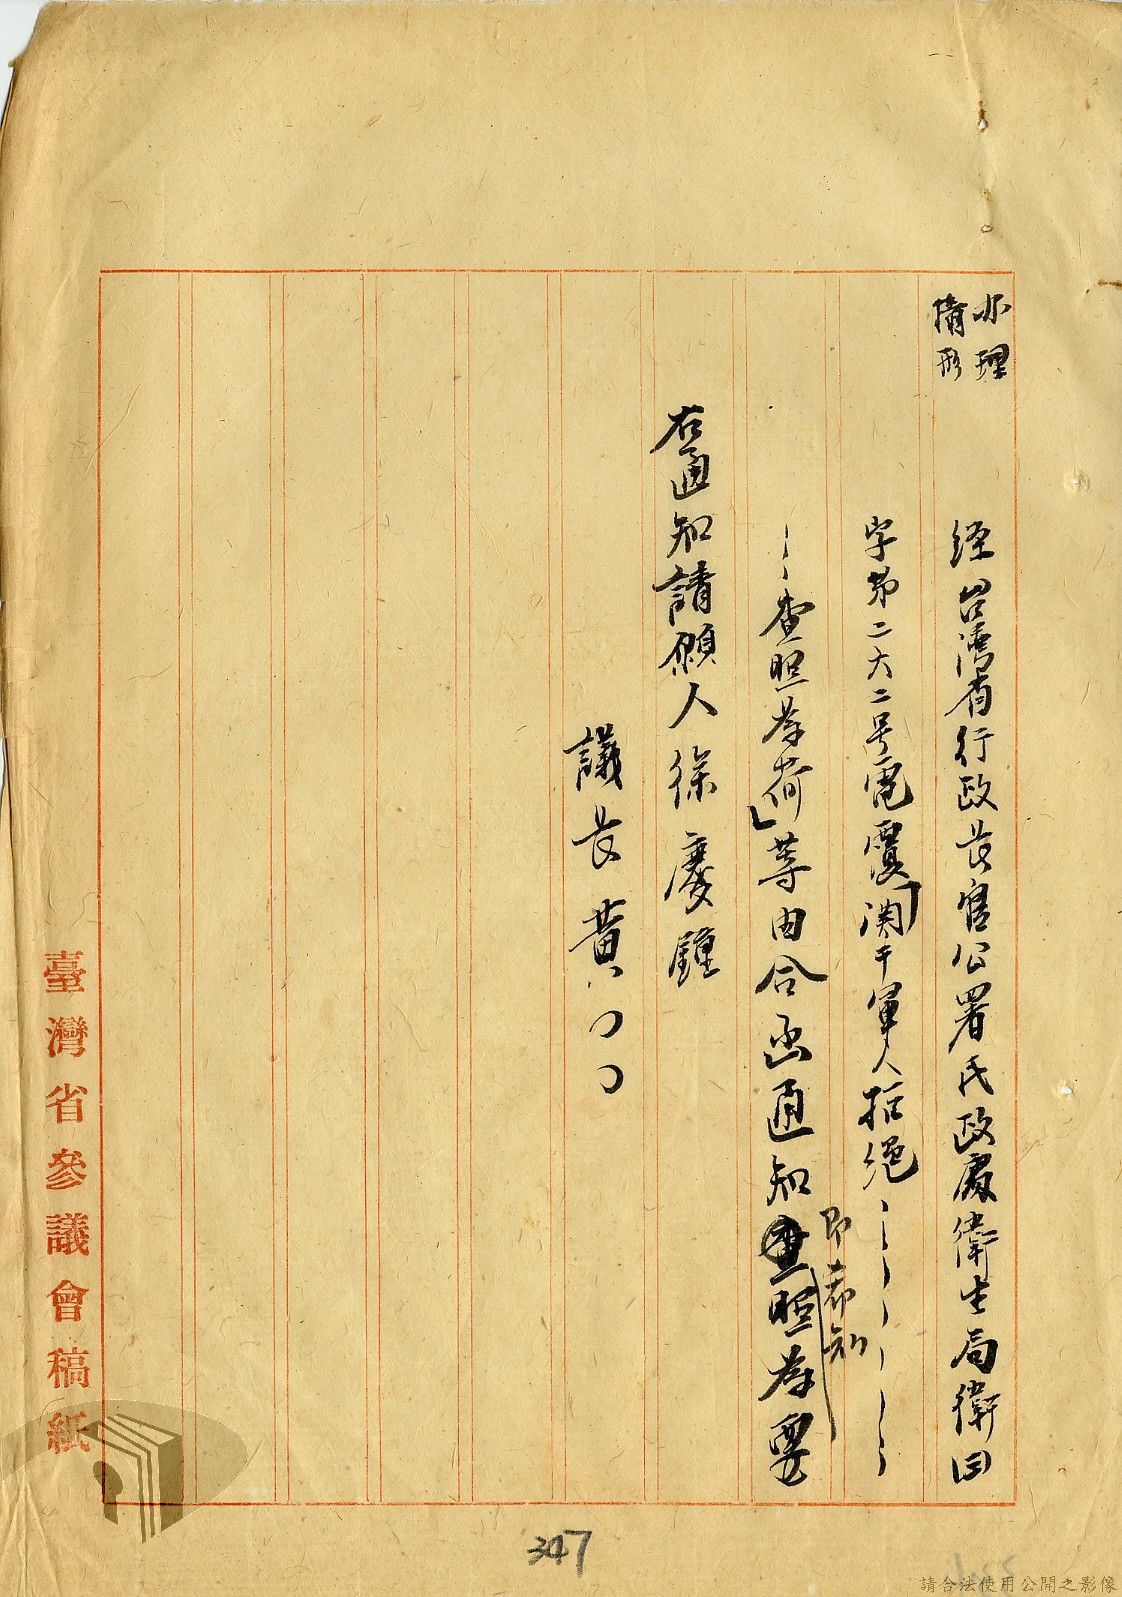 办理
情形
经台湾省行政长官公署民政處衛生局衛四
字第二六二号電覆「関于軍人拒绝、、、、、、
、、查照為荷」等由合函通知查照為要
即希知
右通知請願人徐慶鍾
議長黃○○
臺灣省參議會稿紙
347
請合法使用公開之影像